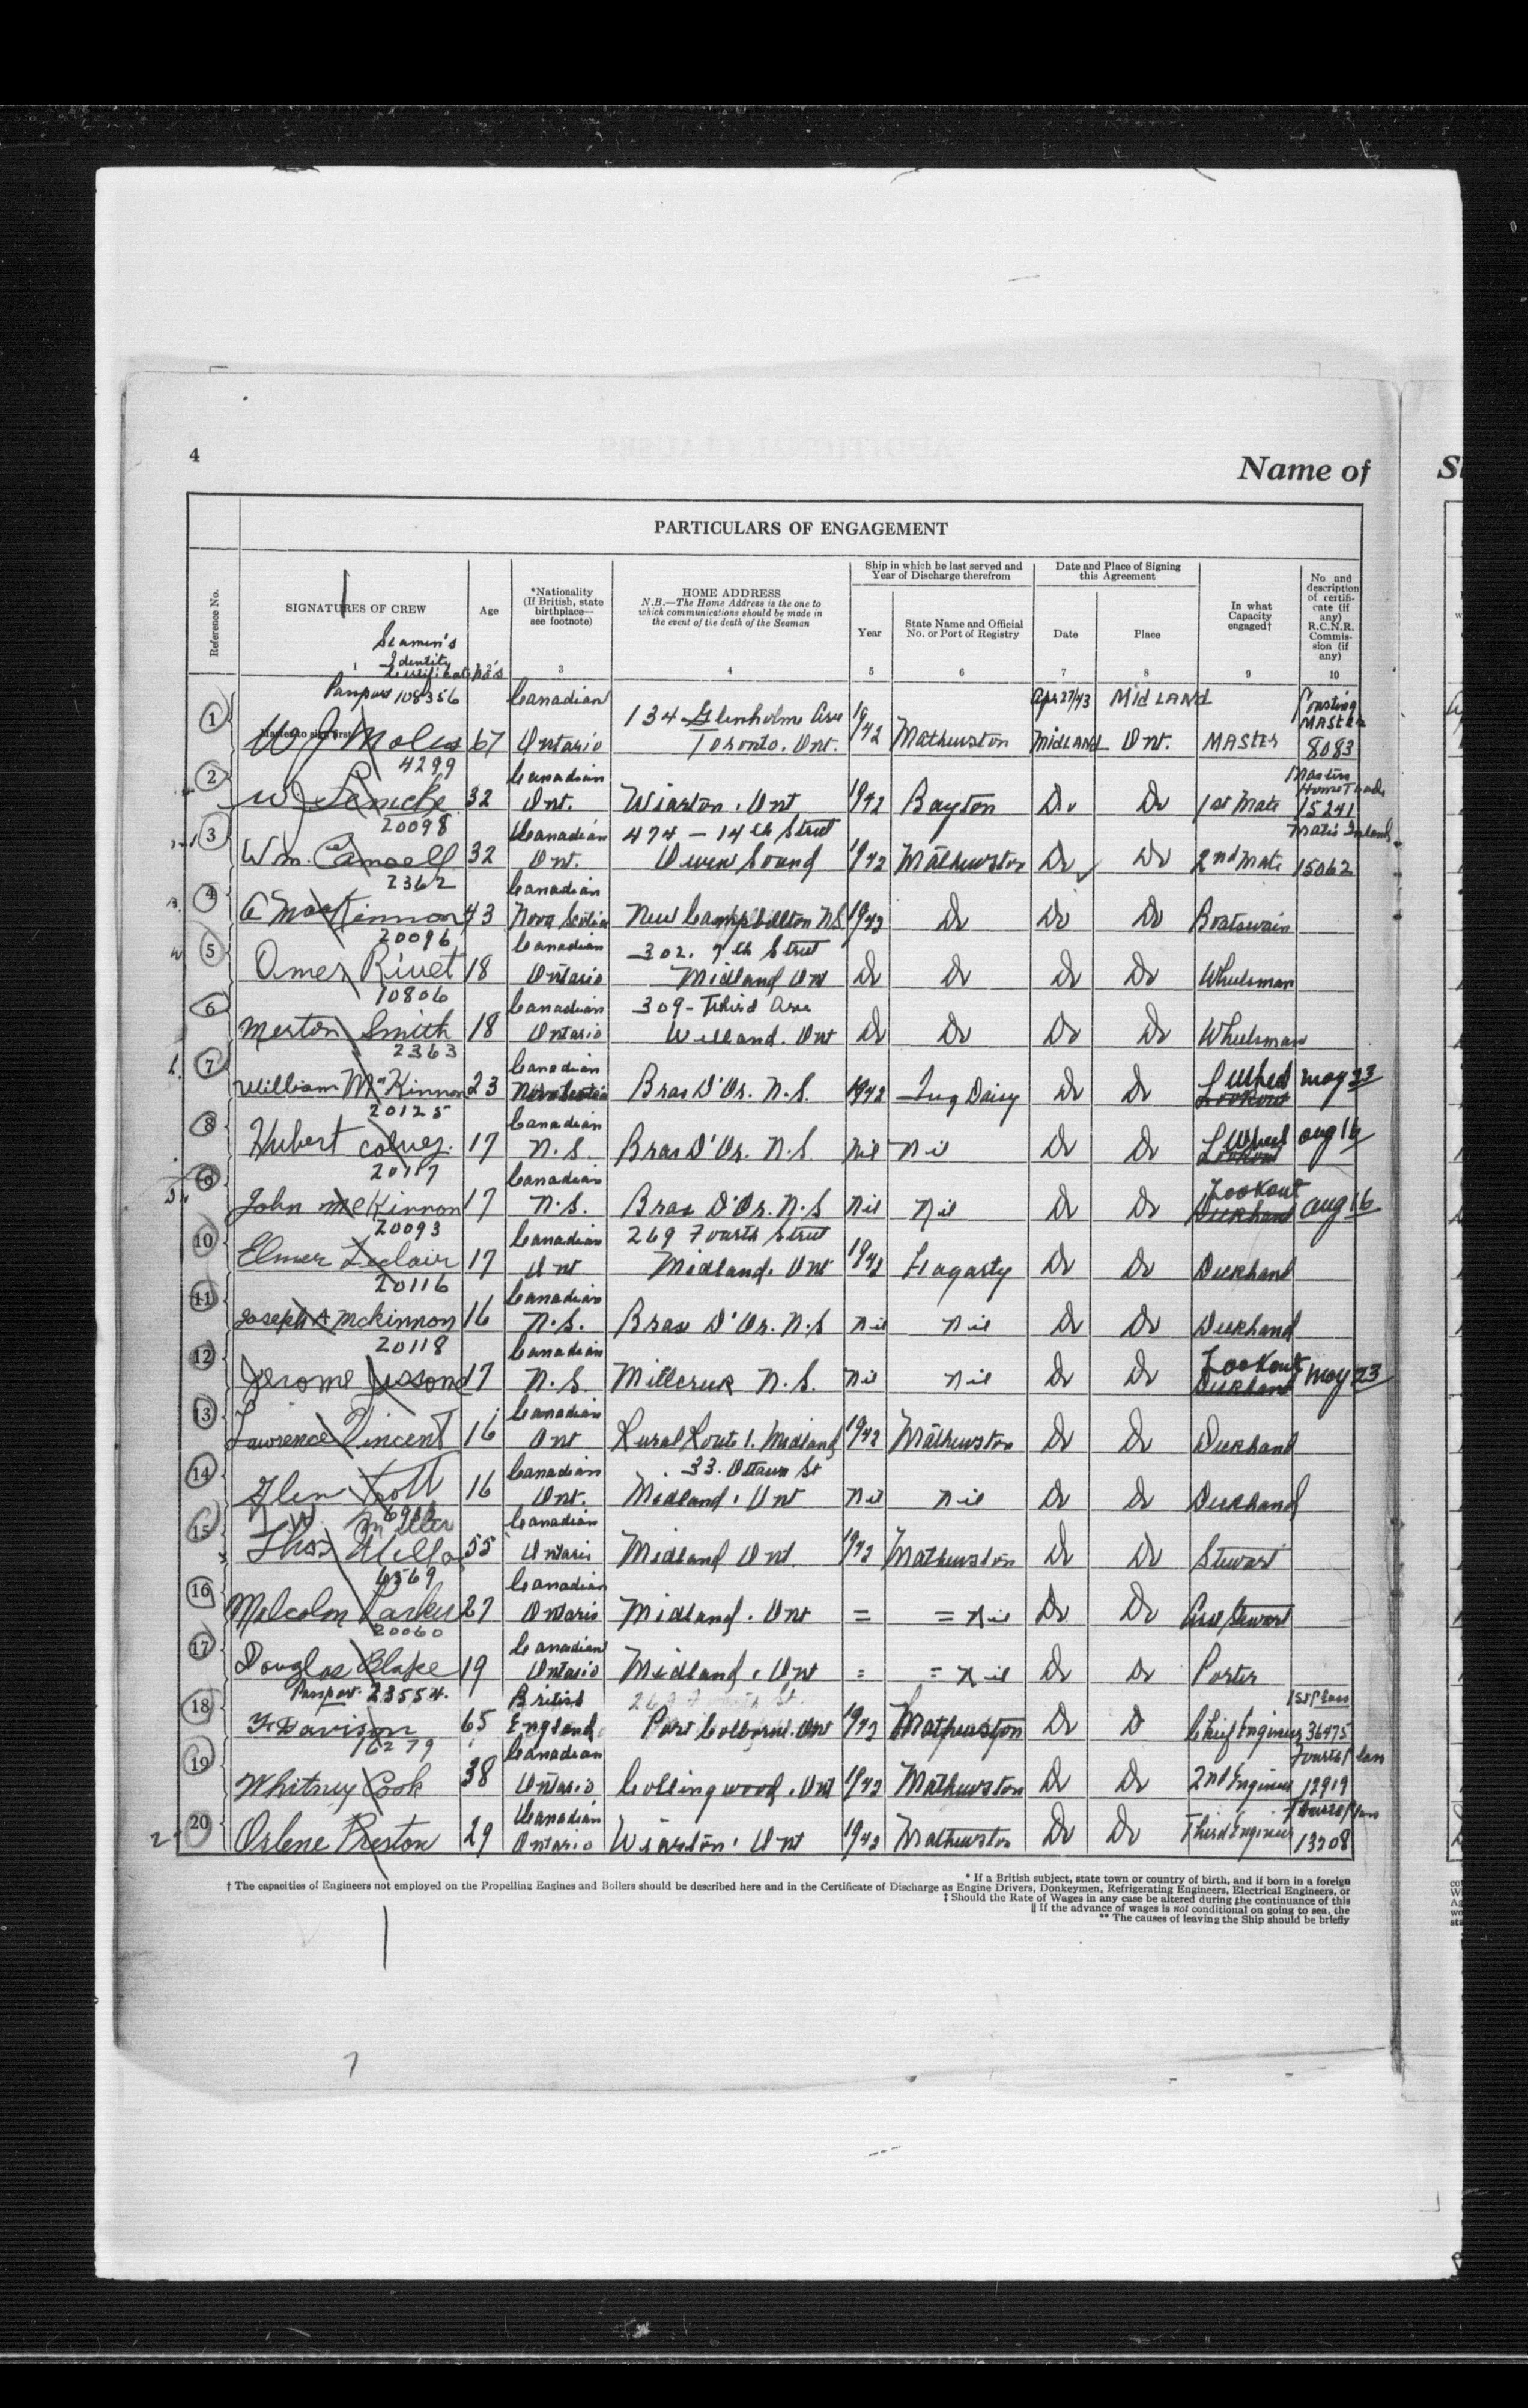 4
Name of
PARTICULARS OF ENGAGEMENT
Reference No.
SIGNATURES OF CREW
Seamen's
Identity
Certificate No's
1
Age
*Nationality
(If British, state
birthplace—
see footnote)
3
HOME ADDRESS
N.B.—The Home Address is the one to
which communications should be made in
the event of the death of the Seaman
4
Ship in which he last served and
Year of Discharge therefrom
Year
5
State Name and Official
No. or Port of Registry
6
Date and Place of Signing
this Agreement
Date
7
Place
8
In what
Capacity
engaged†
9
No and
description
of certifi-
cate (if
any)
R.C.N.R.
Commis-
sion (if
any)
10
Passport 108356 Canadian Apr 27/43 MIDLAND Coasting
1 W J Moles 67 Ontario 134 Glenholme Ave Toronto. Ont. 1942 Mathewston MIDLAND Ont. MASTER MASTER 8083
4299 Canadian Master Home Trade
2 W. 32 Ont. Wiarton. Ont 1942 Bayton Do Do 1st Mate 15241
20098 Canadian 474 - 14th Street Mate's Inland
3 Wm. Cansell 32 Ont. Owen Sound 1942 Mathewston Do Do 2nd Mate 15062
2362 Canadian
4 A MacKinnon 43 Nova Scotia New Campbellton N.S. 1942 Do Do Do Boatswain
20096 Canadian 302. 7th Street
5 Omer Rivet 18 Ontario Midland Ont Do Do Do Do Wheelsman
10806 Canadian 309 - Third Ave
6 Merton Smith 18 Ontario Welland. Ont Do Do Do Do Wheelsman
2363 Canadian
7 William McKinnon 23 Nova Scotia Bras D'Or. N.S. 1942 Tug Daisy Do Do Lookout Wheel May 23
20125 Canadian
8 Hubert 17 N.S. Bras D'Or. N.S. Nil Nil Do Do Lookout Wheel Aug 16
20117 Canadian
9 John McKinnon 17 N.S. Bras D'Or. N.S Nil Nil Do Do Deckhand Lookout Aug 16
20093 Canadian 269 Fourth Street
10 Elmer Leclair 17 Ont Midland. Ont 1942 Hagarty Do Do Deckhand
20116 Canadian
11 Joseph A McKinnon 16 N.S. Bras D'Or. N.S Nil Nil Do Do Deckhand
20118 Canadian
12 Jerome Jessome 17 N.S. Millcreek N.S. Nil Nil Do Do Deckhand Lookout May 23
Canadian
13 Lawrence Vincent 16 Ont Rural Route 1. Midland 1942 Mathewston Do Do Deckhand
Canadian 33. Ottawa St
14 Glen Trott 16 Ont. Midland. Ont Nil Nil Do Do Deckhand
Canadian
15 Thos Miller 55 Ontario Midland Ont. 1942 Mathewston Do Do Steward
6569 Canadian
16 Malcolm Parker 27 Ontario Midland. Ont = = Nil Do Do Ass Steward
20060 Canadian
17 Douglas Blake 19 Ontario Midland. Ont = = Nil Do Do Porter
Passport 23554. British 1st Class
18 F Davison 65 England Port Colborne. Ont 1942 Mathewston Do Do Chief Engineer 36475
16279 Canadian Fourth Class
19 Whitney Cook 38 Ontario Collingwood. Ont 1942 Mathewston Do Do 2nd Engineer 12919
Canadian Fourth Class
20 Orlene Preston 29 Ontario Wiarton. Ont 1942 Mathewston Do Do Third Engineer 13208
* If a British subject, state town or country of birth, and if born in a foreign
† The capacities of Engineers not employed on the Propelling Engines and Boilers should be described here and in the Certificate of Discharge as Engine Drivers, Donkeymen, Refrigerating Engineers, Electrical Engineers, or
‡ Should the Rate of Wages in any case be altered during the continuance of this
|| If the advance of wages is not conditional on going to sea, the
** The causes of leaving the Ship should be briefly